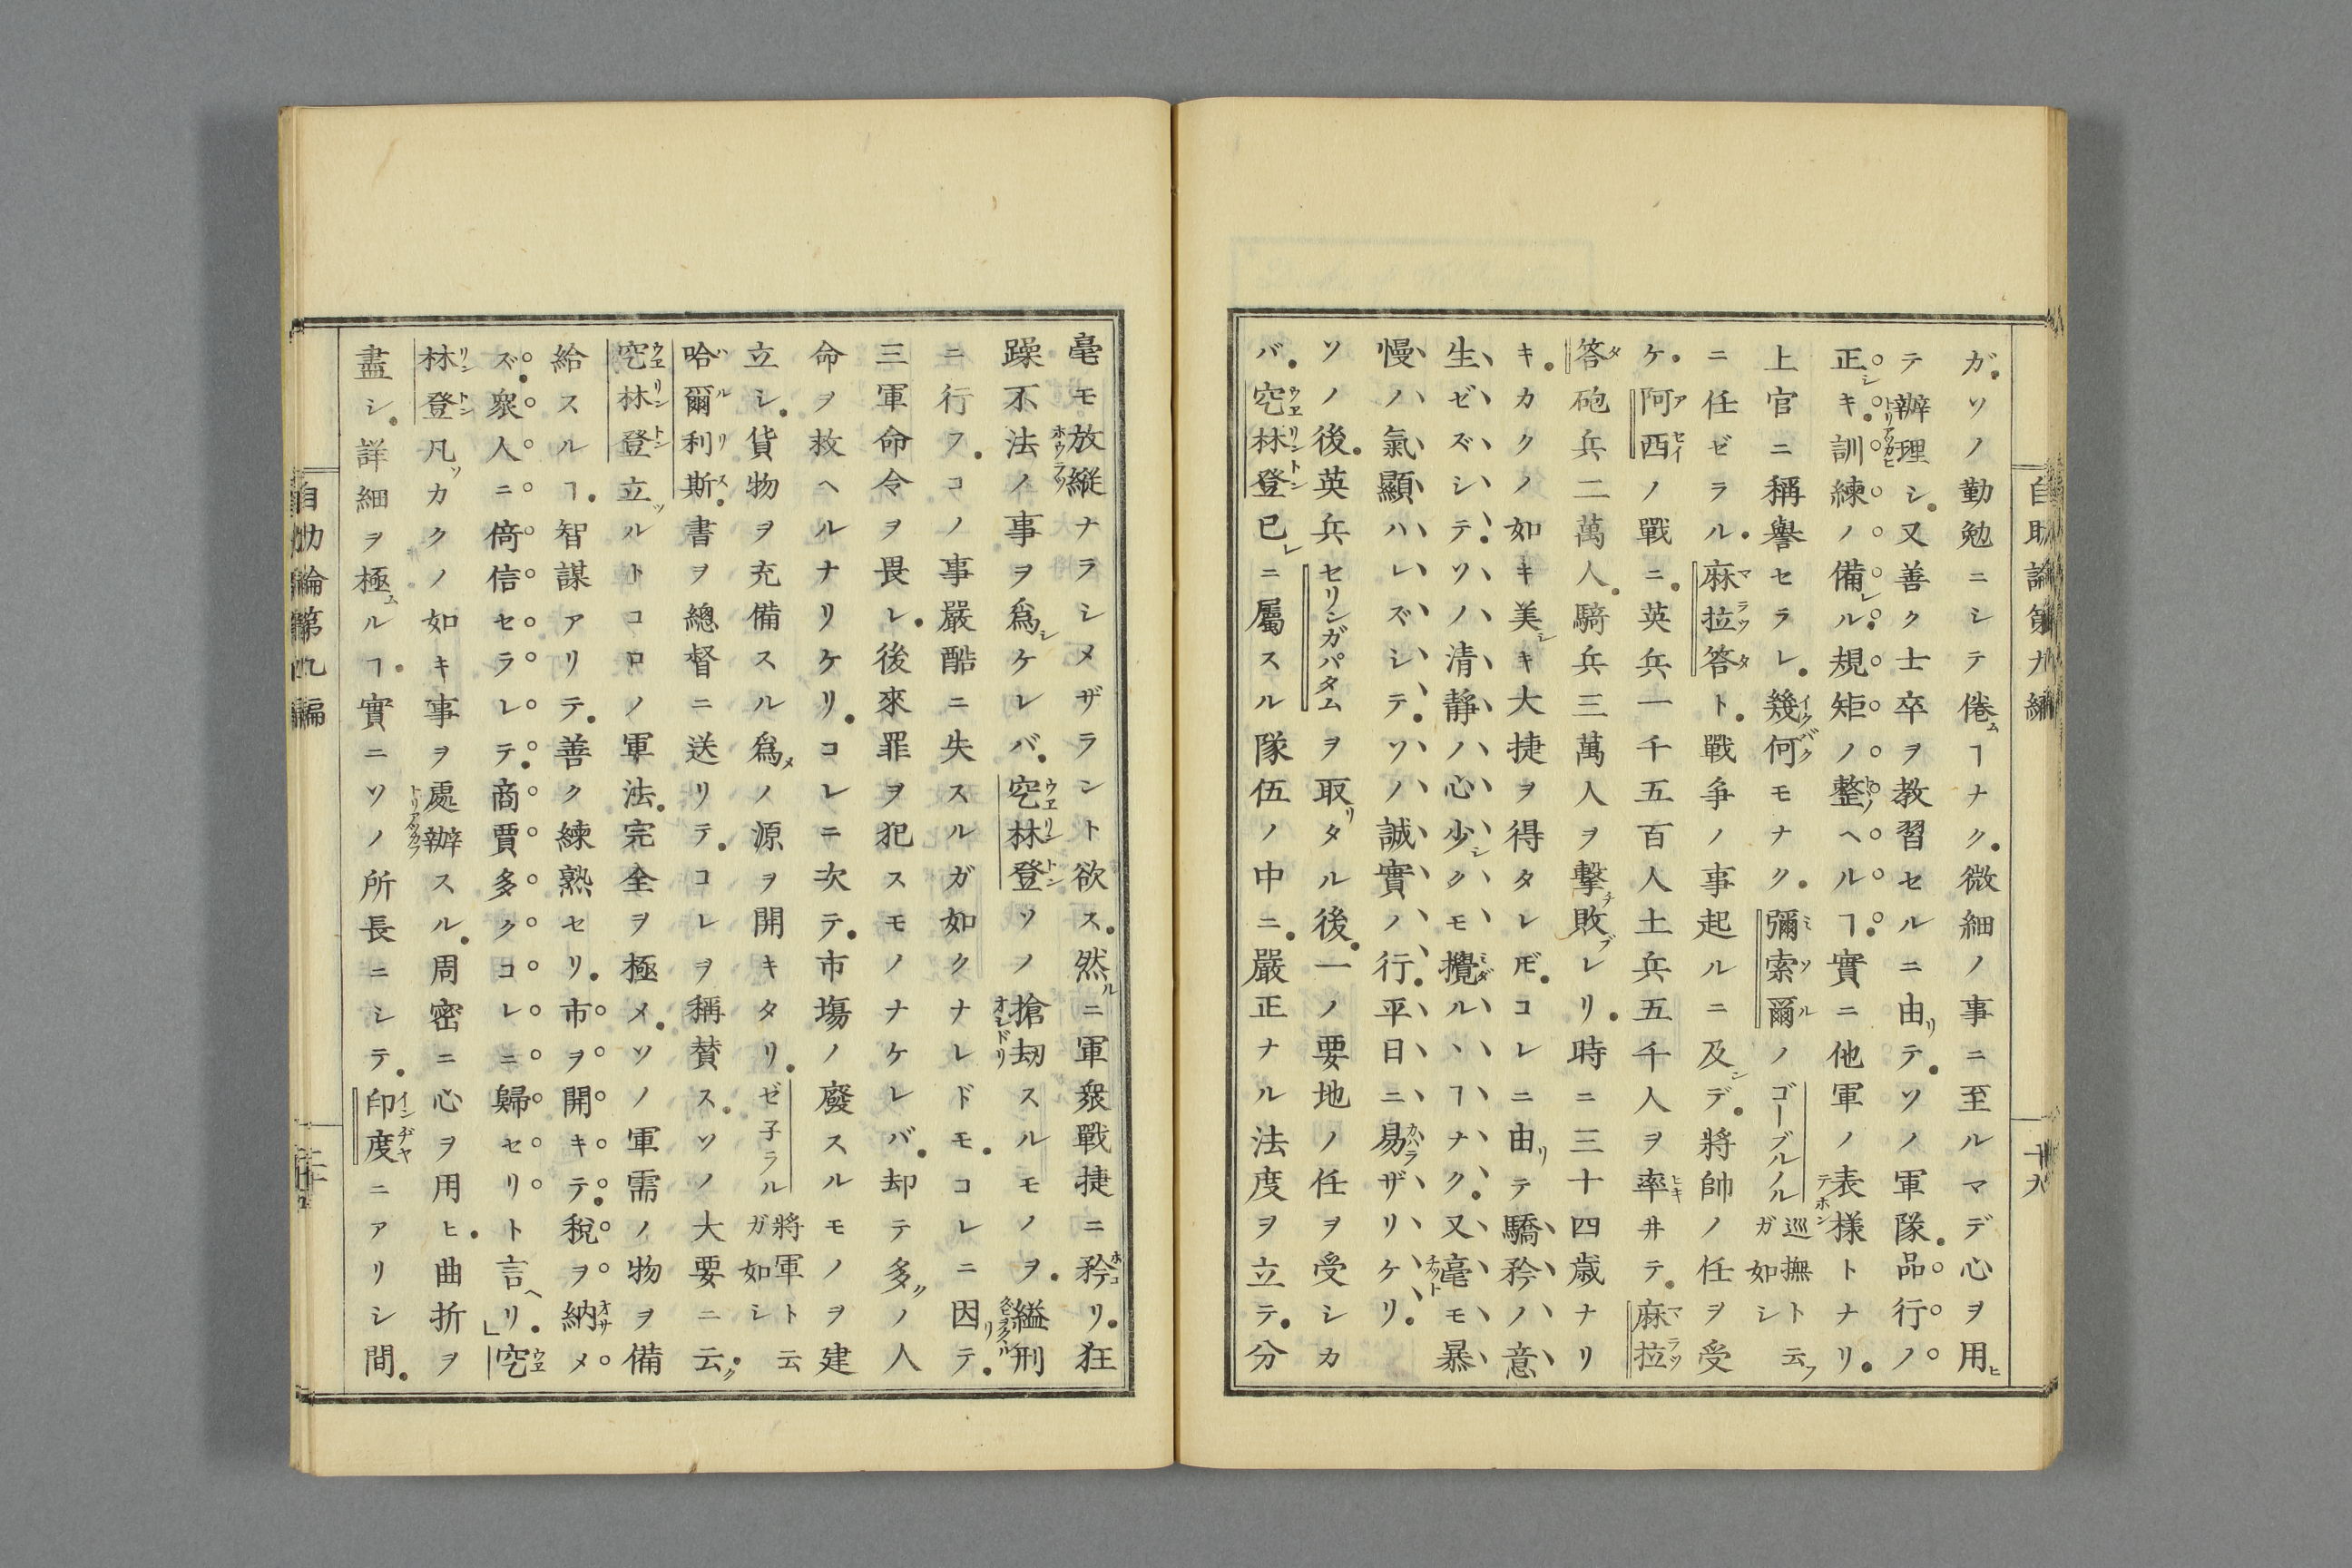 自助論第九編
十九
ガソノ勤勉ニシテ倦ムヿナク。微細ノ事ニ至ルマデ心ヲ用ヒ
テ辦理シ。又善ク士卒ヲ教習セルニ由リテ。ソノ軍隊。品行ノ
正シキ。訓練ノ備レル。規矩ノ整ヘルヿ。實ニ他軍ノ表様トナリ。
上官ニ稱譽セラレ。幾何モナク。彌索爾ノゴーブルノル巡撫ト云フガ如シ
ニ任ゼラル。麻拉答ト。戰爭ノ事起ルニ及ンデ。將帥ノ任ヲ受
ケ。阿西ノ戰ニ。英兵一千五百人土兵五千人ヲ率井テ。麻拉
答砲兵二萬人。騎兵三萬人ヲ撃チ敗ブレリ。時ニ三十四歳ナリ
キ。カクノ如キ美シキ大捷ヲ得タレ𪜈。コレニ由リテ驕矜ノ意
生ゼズシテ。ソノ清静ノ心少シクモ攪ルヽヿナク。又毫モ暴
慢ノ氣顯ハレズシテ。ソノ誠實ノ行。平日ニ易ザリケリ。
ソノ後。英兵セリンガパタムヲ取リタル後。一ノ要地ノ任ヲ受シカ
バ。空林登已レニ屬スル隊伍ノ中ニ。嚴正ナル法度ヲ立テ。分
毫モ放縱ナラシメザラント欲ス。然ルニ軍衆戰捷ニ矜リ。狂
躁不法ノ事ヲ爲シケレバ。空林登ソノ搶刧スルモノヲ。縊刑
ニ行フ。コノ事嚴酷ニ失スルガ如クナレドモ。コレニ因リテ。
三軍命令ヲ畏レ。後來罪ヲ犯スモノナケレバ。却テ多クノ人
命ヲ救ヘルナリケリ。コレニ次テ。市塲ノ廢スルモノヲ建
立シ。貨物ヲ充備スル爲メノ源ヲ開キタリ。ゼ子ラル將軍ト云ガ如シ
哈爾利斯。書ヲ總督ニ送リテ。コレヲ稱賛ス。ソノ大要ニ云ク。
空林登立ツルトコロノ軍法。完全ヲ極メ。ソノ軍需ノ物ヲ備
給スルヿ。智謀アリテ。善ク練熟セリ。市ヲ開キテ。稅ヲ納メ
ズ。衆人ニ倚信セラレテ。商賈多クコレニ歸セリト言ヘリ。」空
林登凡ソカクノ如キ事ヲ處辦スル。周密ニ心ヲ用ヒ。曲折ヲ
盡シ。詳細ヲ極ムルヿ。實ニソノ所長ニシテ。印度ニアリシ間。
自助論第九編